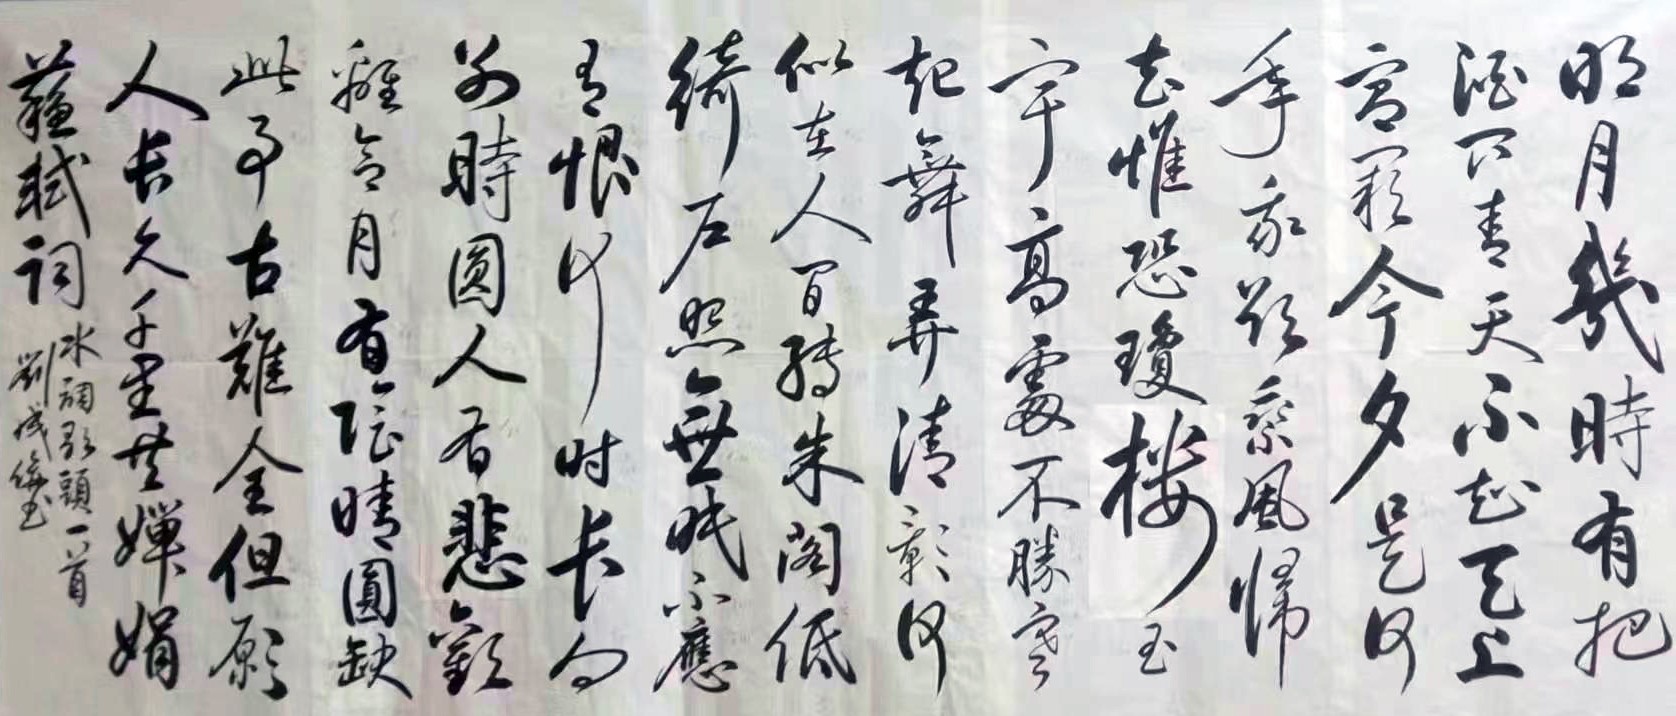 明月幾時有把
酒问青天不知天上
宫闕今夕是何
年我欲乘風歸
去惟恐瓊楼玉
宇高處不勝寒
起舞弄清影何
似在人间轉朱阁低
綺户照無眠不應
有恨何时长向
别時圆人有悲歡
離合月有阴晴圓缺
此事古難全但愿
人长久千里共嬋娟
蘇軾詞
水調歌頭一首
劉成书